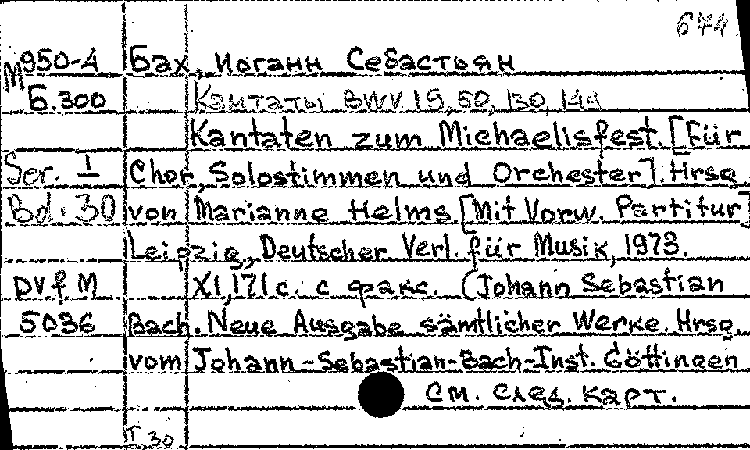 674
М950-4 Бах, Иоганн Себастьян
Б.300 Кантаты BWV 19, 50, 130, 149
Kantaten zum Michaelisfest. [Für
Ser. I Chor, Solostimmen und Orchester]. Hrsg.
Bd. 30 von Marianne Helms. [Mit Vorw. Partitur]
Leipzig, Deutscher Verl. für Musik, 1973.
DVfM XI, 171 с. с факс. (Johann Sebastian
5036 Bach. Neue Ausgabe sämtlicher Werke. Hrsg.
vom Johann-Sebastian-Bach-Inst. Göttingen
См. след. карт.
Т 30